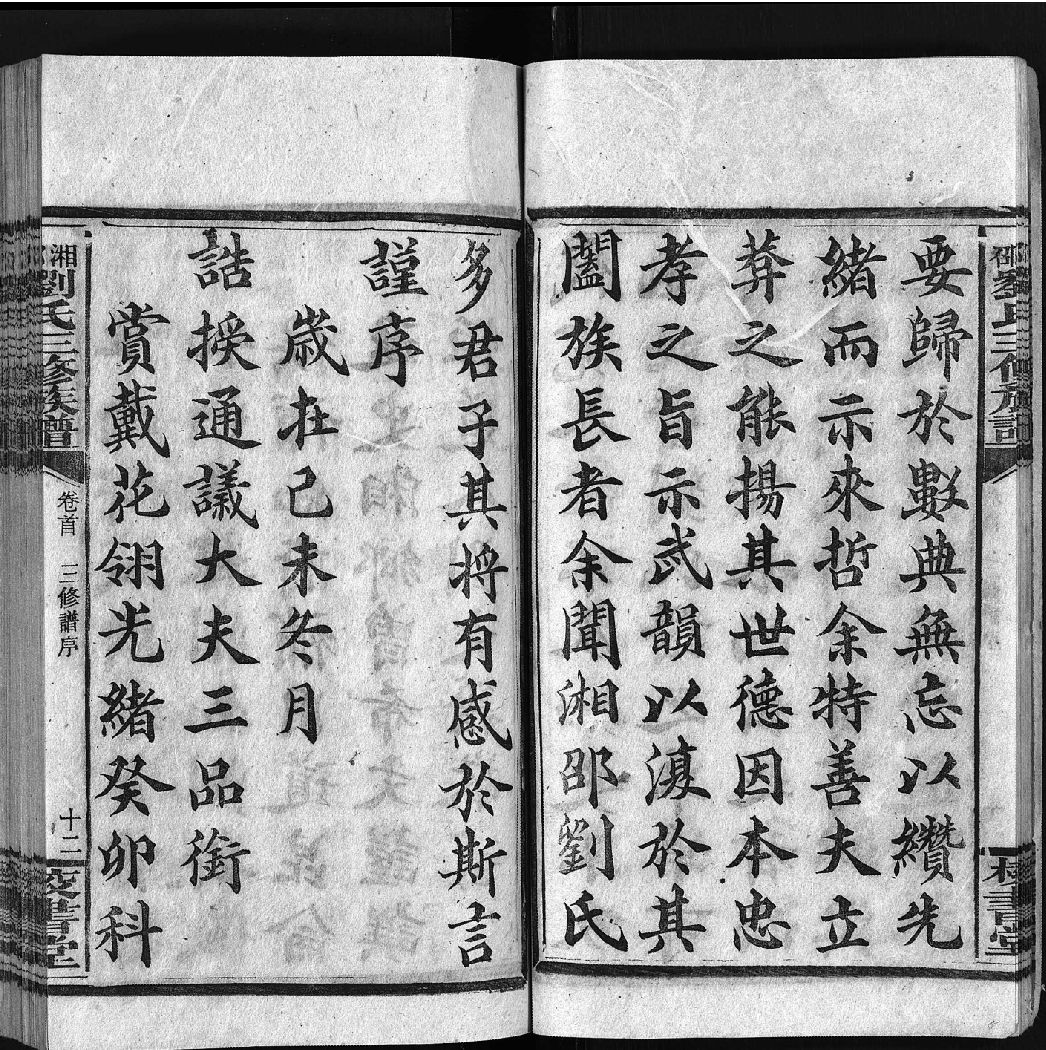 要歸於數典無忘以纘先
緒而示來哲余特善夫立
葬之能揚其世德因本忠
孝之旨示武韻以復於其
闔族長者余聞湘邵劉氏
多君子其將有感於斯言
謹序
歲在己未冬月
誥授通議大夫三品銜
賞戴花翎光緒癸卯科
湘劉氏三修族譜
卷首
三修譜序
十二